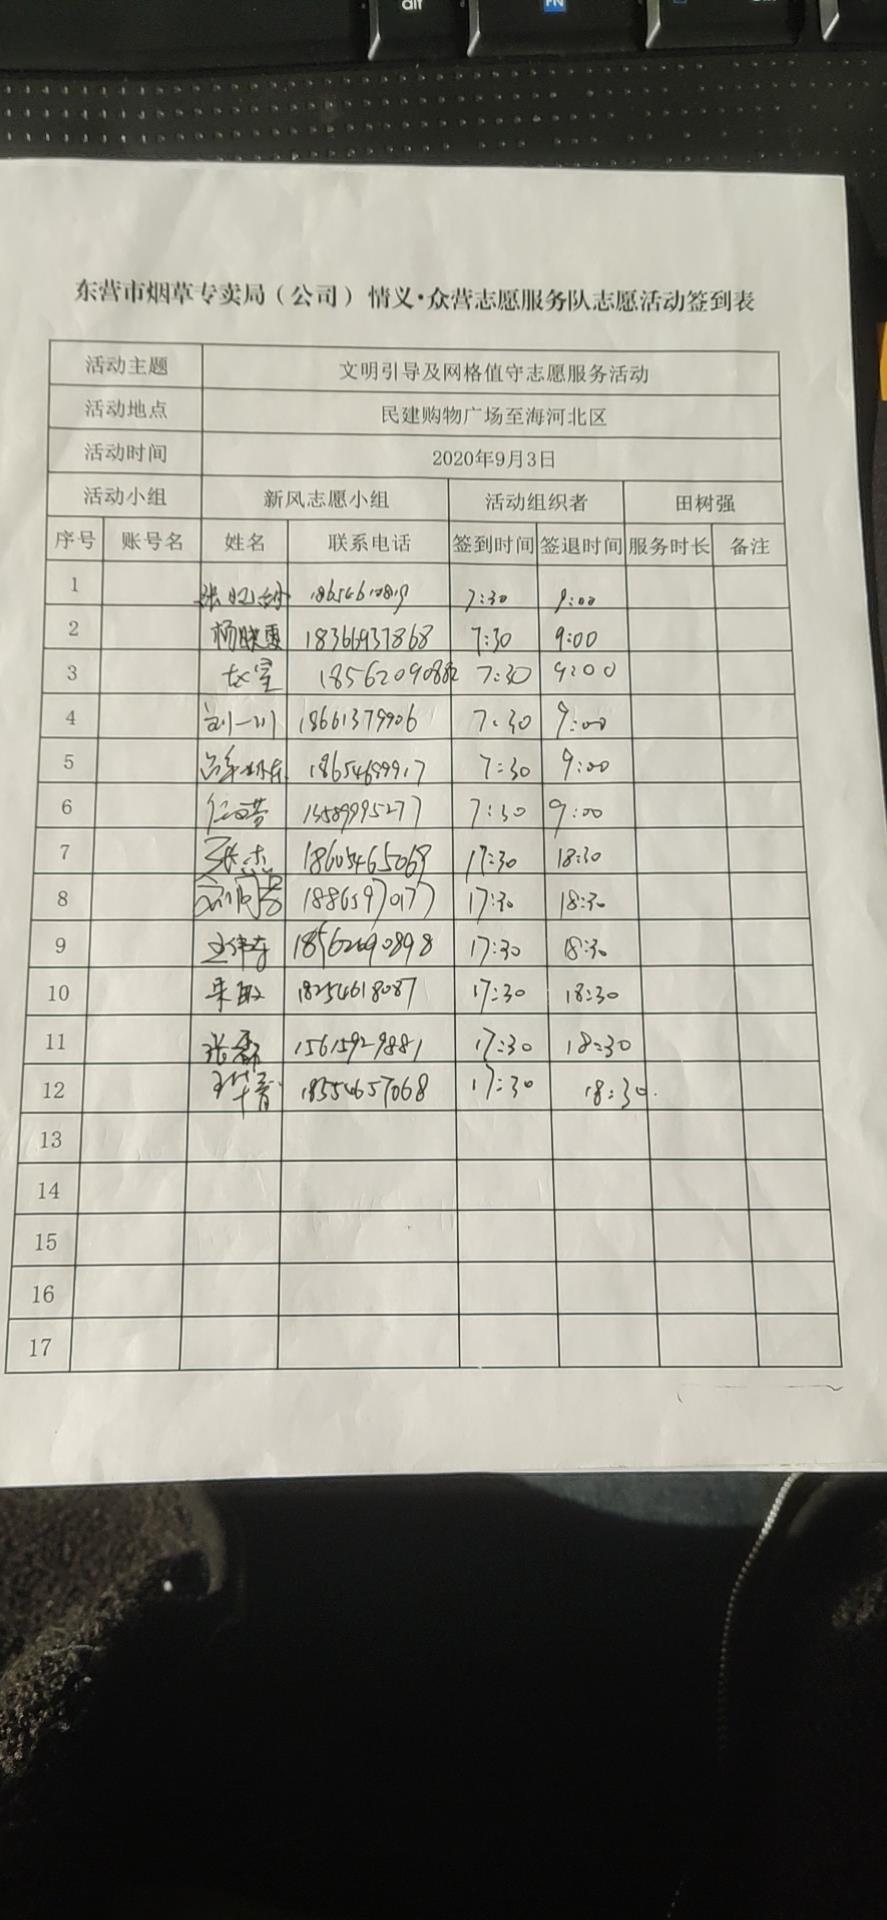 alt
FN
东营市烟草专卖局（公司）情义·众营志愿服务队志愿活动签到表
活动主题 文明引导及网格值守志愿服务活动
活动地点 民建购物广场至海河北区
活动时间 2020年9月3日
活动小组 新风志愿小组 活动组织者 田树强
序号 账号名 姓名 联系电话 签到时间 签退时间 服务时长 备注
1 7:30 9:00
2 18366937868 7:30 9:00
3 7:30 9:00
4 刘一川 18661379906 7:30 9:00
5 7:30 9:00
6 7:30 9:00
7 张杰 18605465069 17:30 18:30
8 17:30 18:30
9 17:30 18:30
10 18254618087 17:30 18:30
11 张磊 15615929881 17:30 18:30
12 18554657068 17:30 18:30
13
14
15
16
17